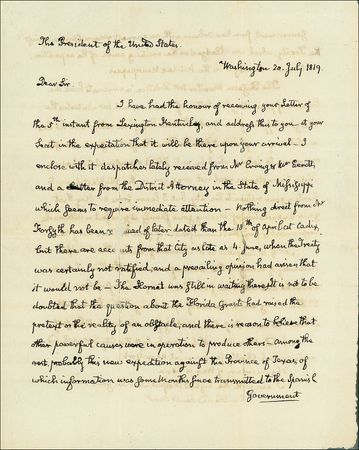 The President of the United States.
Washington 20. July 1819.
Dear Sir.
I have had the honour of receiving your Letter of
the 5th instant from Lexington Kentucky, and address this to you at your
Seat in the expectation that it will be there upon your arrival. I
enclose with it despatches lately received from Mr Erving & Mr Everett,
and a Letter from the District Attorney in the State of Mississippi
which seems to require immediate attention — Nothing direct from Mr
Forsyth has been received of later dated than the 18th of April at Cadiz,
but there are accounts from that City as late as 4. June, when the Treaty
was certainly not ratified, and a prevailing opinion had arisen that
it would not be — The Hornet was still in waiting there. It is not to be
doubted that the question about the Florida Grants had raised the
pretext or the reality of an obstacle, and there is reason to believe that
other powerful causes were in operation to produce others — among the
rest, probably this new expedition against the Province of Texas, of
which information was some Months since transmitted to the Spanish
Government